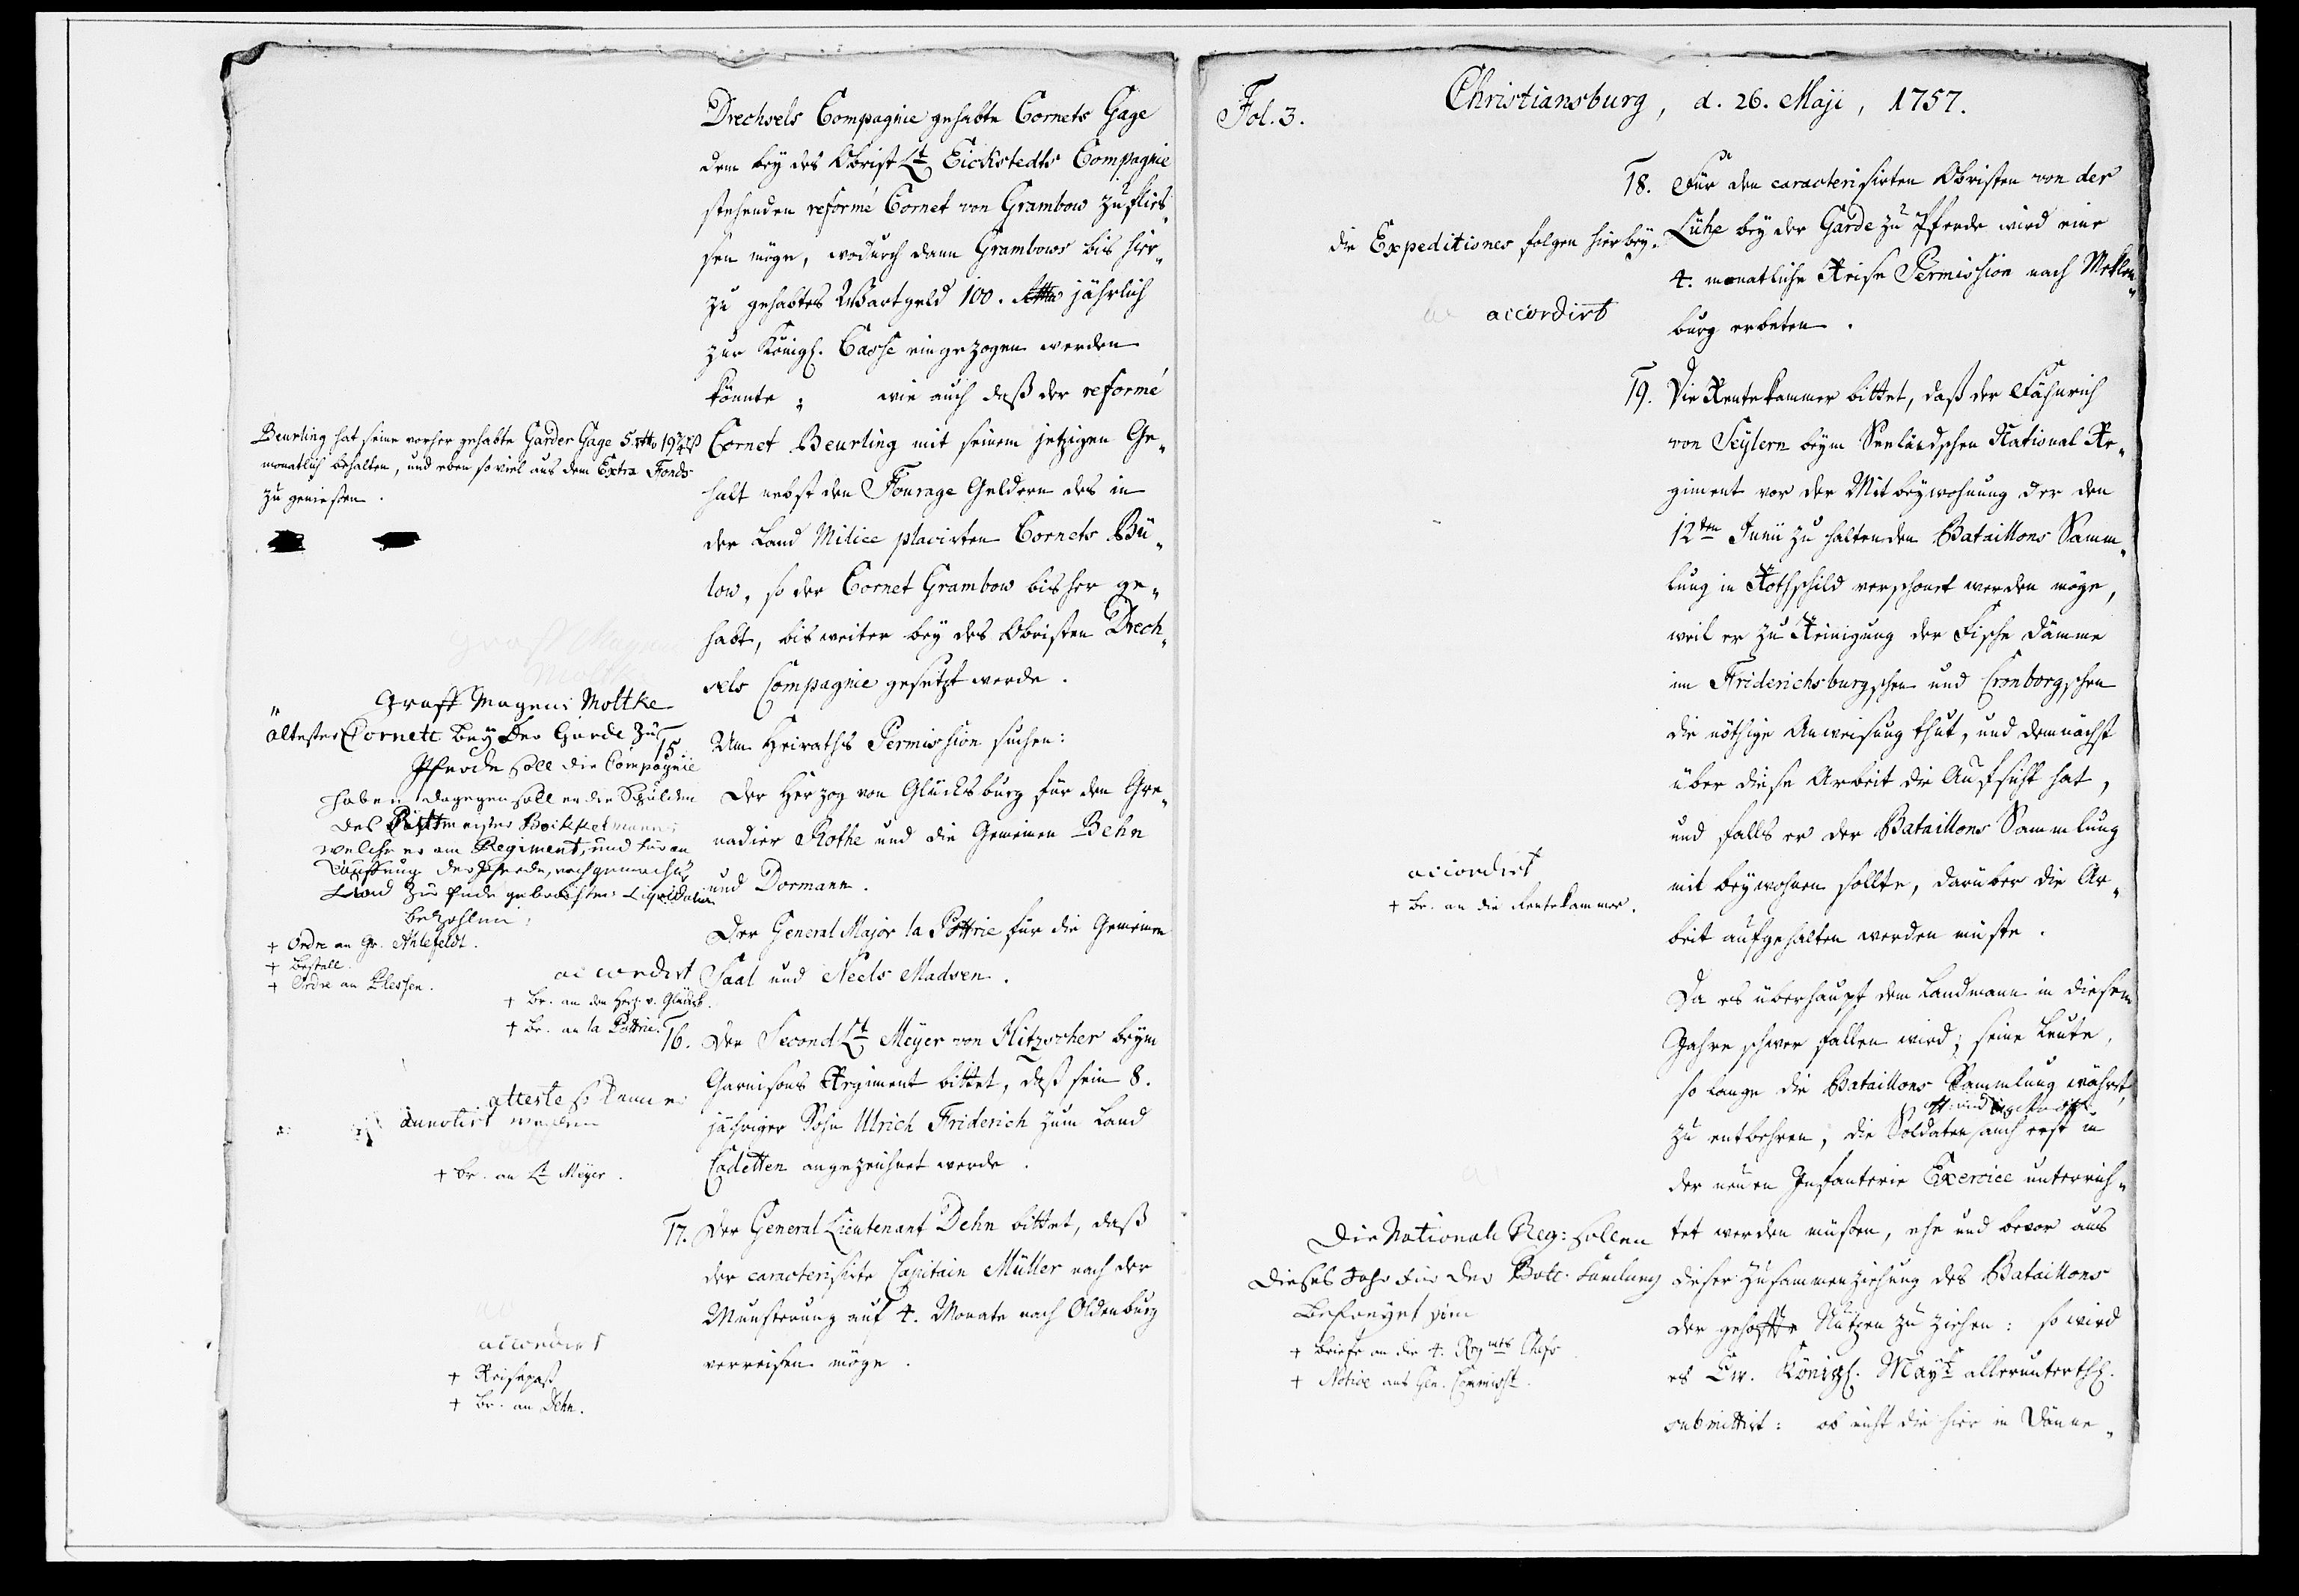 Drechsels Compagnie gehabte Cornets Gage
dem bey des Obrist Lt Eickstedts Compagnie
stehenden reformé Cornet von Grambow zuflies„
sen möge, wodurch dann Grambows bis hier„
zu gehabtes Wartgeld 100. Rthlr jährlich
zur Königl. Casse eingezogen werden
könnte; wie auch daß der reformé
Cornet Beurling mit seinem jetzigen Ge„
halt nebst den Fourage Geldern des in
der Land Milice placirten Cornets Bü„
low, so der Cornet Grambow bisher ge„
habt, bis weiter bey des Obristen Drech„
sels Compagnie gesetzt werde.
Beurling hat seine vorher gehabte Garder Gage 5 rthlr 19¾ ß
monatlich behalten, und eben so viel aus dem Extra Fonds
zu geniessen.
Graff Magnus Moltke
ältester Cornett bey der Garde zu
Pferde soll die Compagnie
haben dagegen soll er die Schulden
des Rittmeister
welche er am Regiment, und
der Pferde, nach gemachter
und zu Ende gebrachter Liquidation
bezahlen.
+ Ordre an Gr. Ahlefeldt.
+ Bestall.
+ Ordre an Plessen.
15. Um Heiraths Permission suchen:
Der Herzog von Glücksburg für den Gre„
nadier Rothe und die Gemeinen Behn
und Dormann.
Der General Major la Pottrie für die Gemeinen
Saal und Neels Madsen.
accordirt
+ Br. an den Herz. v. Glücksb.
+ Br. an la Pottrie.
16. Der Second Lt Meyer von Hitzscher beym
Garnisons Regiment bittet, daß sein 8.
jähriger Sohn Ulrich Friderich zum Land
Cadetten angezeichnet werde.
annotirt werden
+ Br. an Lt Meyer.
17. Der General Lieutenant Dehn bittet, daß
der caracterisirte Capitain Müller nach der
Munsterung auf 4. Monate nach Oldenburg
verreisen möge.
accordirt
+ Reisepaß
+ Br. an Dehn.
Fol. 3.
Christiansburg, d. 26. Maji, 1757.
18. Für den caracterisirten Obristen von der
Lühe bey der Garde zu Pferde wird eine
4. monatliche Reise Permission nach Meklen„
burg erbeten.
die Expeditiones folgen hierbey.
accordirt
19. Die Rentekammer bittet, daß der Fähnrich
von Seylern beym Seeländschen National Re„
giment vor der Mitbeywohnung der den
12ten Junii zu haltenden Bataillons Samm„
lung in Rothschild verschonet werden möge,
weil er zu Reinigung der Fische Dämme
im Friderichsburgschen und Cronborgschen
die nöthige Anweisung thut, und demnächst
über diese Arbeit die Aufsicht hat,
und falls er der Bataillons Sammlung
mit beywohnen sollte, darüber die Ar„
beit aufgehalten werden müste.
accordirt
+ Br. an die Rentekammer.
Da es überhaupt dem Landmann in diesem
Jahre schwer fallen wird, seine Leute,
so lange die Bataillons Sammlung währet,
zu entbehren, die Soldaten auch erst in
der neuen Infanterie Exercice unterrich„
tet werden müsten, ehe und bevor aus
dieser Zusammenziehung des Bataillons
der gehoffte Nutzen zu ziehen: so wird
es Ew. Königl. Mayt allerunterth.
submittirt: ob nicht die hier in Dänne„
Die Nationale Reg: sollen
dieses Jahr für der Batt. Samlung
befreyet sein
+ Briefe an die 4. Regmts Chefs.
+ Notice ans Gen. Commisst.